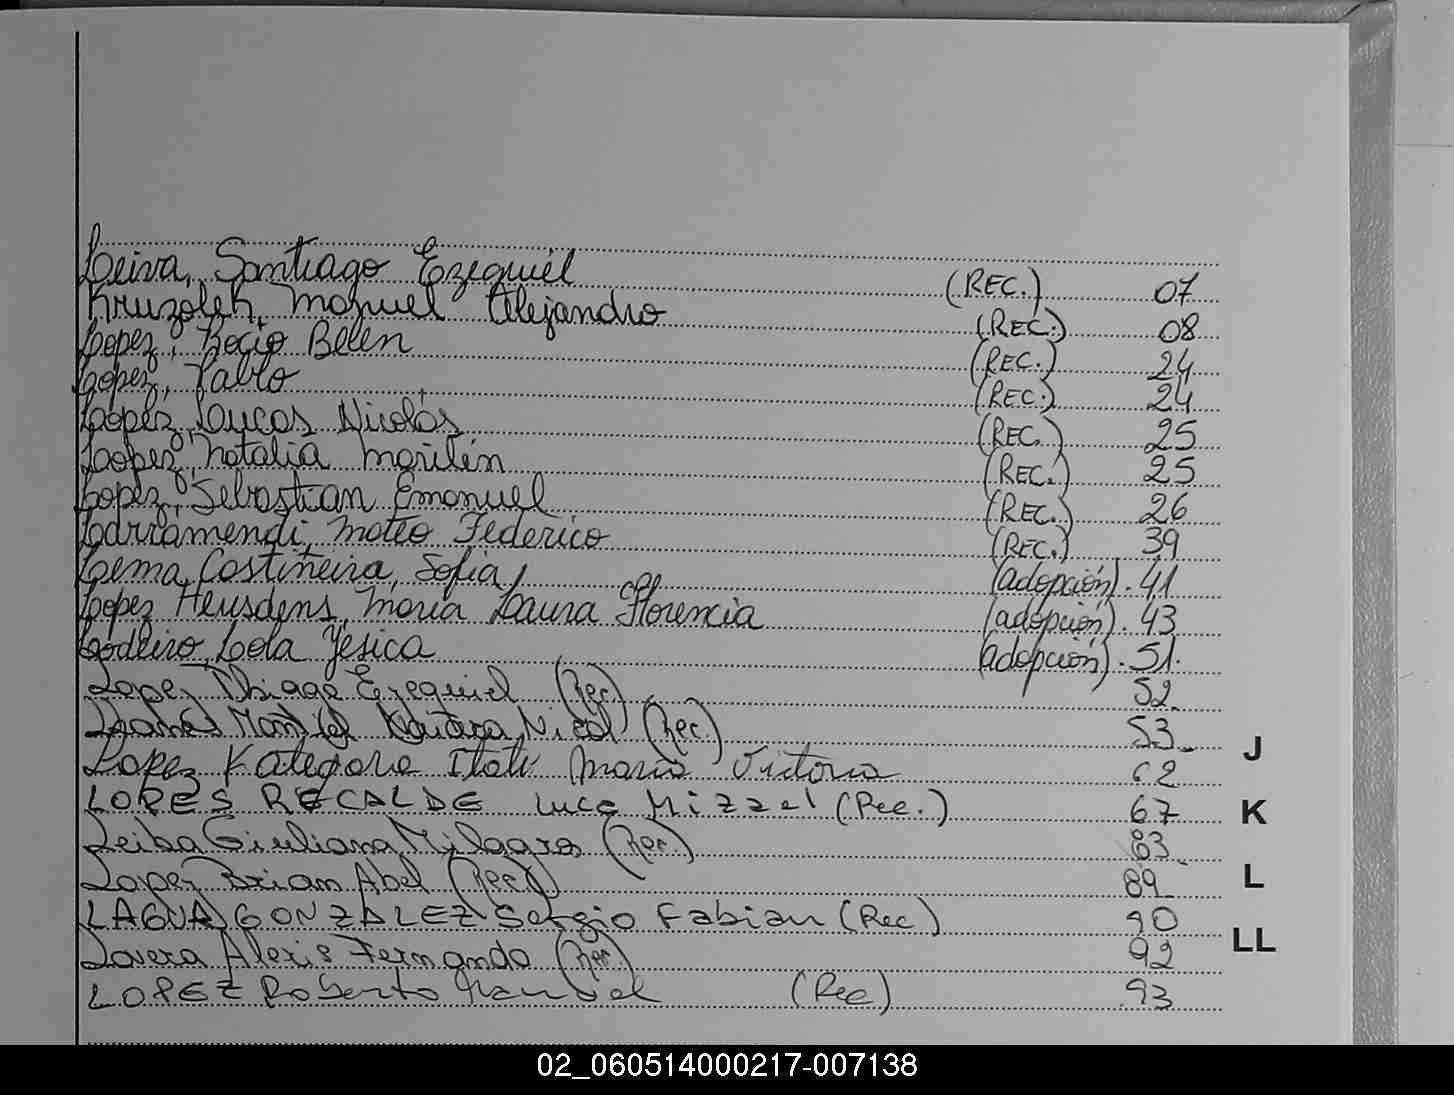 Leiva, Santiago Ezequiel (REC.) 07
Kruzoleh, Manuel Alejandro (REC.) 08
Lopez, Rocio Belén (REC.) 24
Lopez, Pablo (REC.) 24
Lopez, Lucas Nicolás (REC.) 25
Lopez, Natalia Marilin (REC.) 25
Lopez, Sebastian Emanuel (REC.) 26
Larramendi, Mateo Federico (REC.) 39
Lema, Castiñeira, Sofia (adopción). 41
Lopez Heusdens, María Laura Florencia (adopción). 43
Lodeiro Lola Yesica (adopción). 51.
Lopez Thiago Ezequiel (Rec) 52.
Nicol (Rec.) 53.
J
Lopez Itati Maria Victoria 62
LORES RECALDE Luca Mizzel (Rec.) 67
K
Leiba Giuliana Milagros (Rec.) 83.
Lopez Brian Abel (Rec.) 89
L
LAGUA GONZALEZ Sergio Fabian (Rec) 90
LL
Lovera Alexis Fernando (Rec.) 92
LOPEZ Roberto Manuel (Rec) 93
02_060514000217-007138